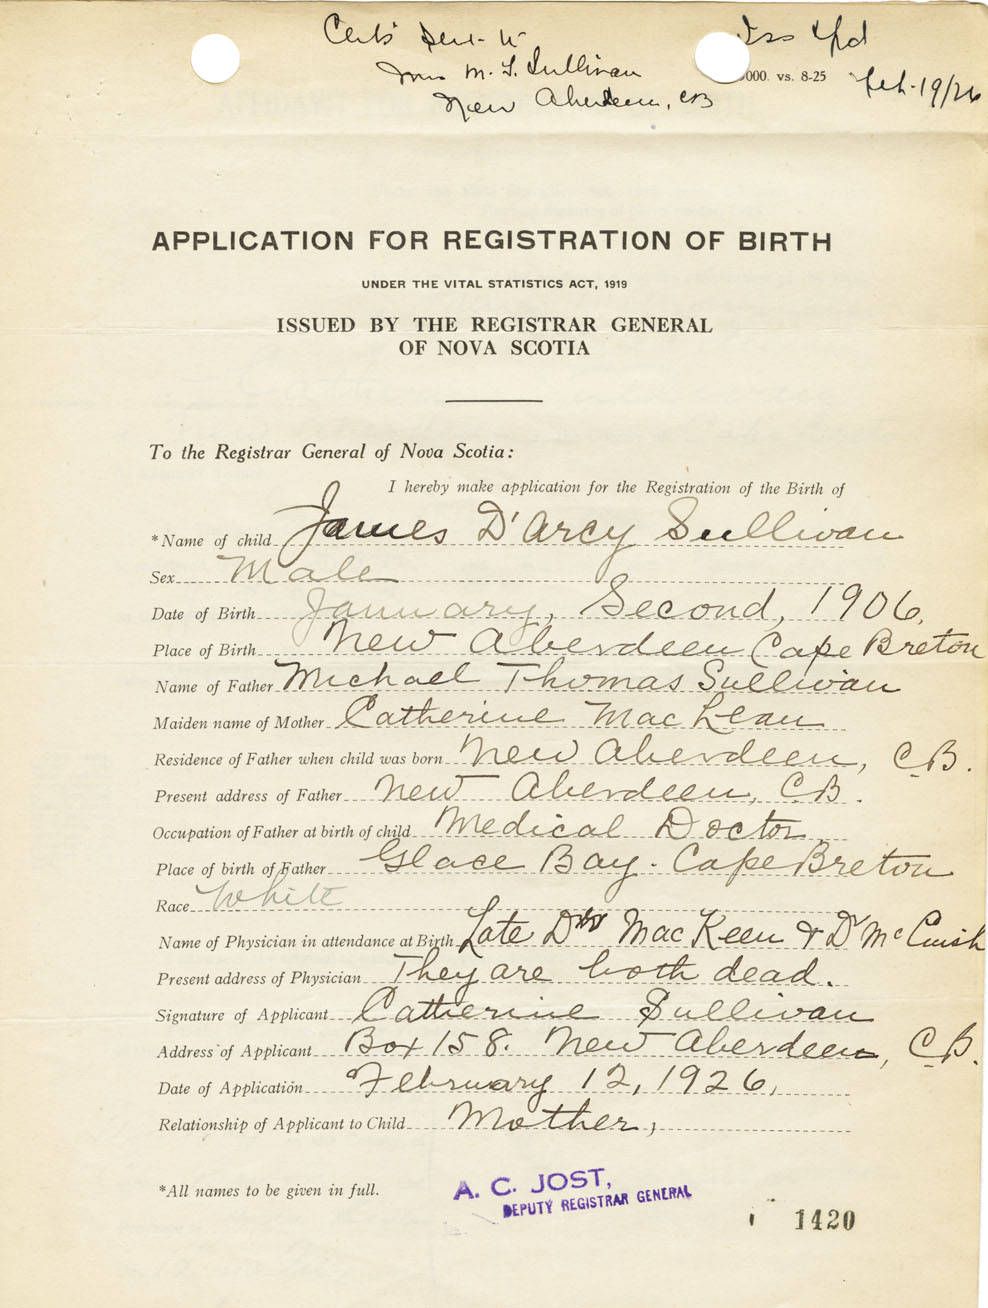 Cert. Sent to
Mrs M. T. Sullivan
New Aberdeen, CB
000. vs. 8-25
Feb. 19/26
APPLICATION FOR REGISTRATION OF BIRTH
UNDER THE VITAL STATISTICS ACT, 1919
ISSUED BY THE REGISTRAR GENERAL
OF NOVA SCOTIA
To the Registrar General of Nova Scotia:
I hereby make application for the Registration of the Birth of
*Name of child James D'Arcy Sullivan
Sex Male
Date of Birth January, Second, 1906,
Place of Birth New Aberdeen Cape Breton
Name of Father Michael Thomas Sullivan
Maiden name of Mother Catherine MacLean
Residence of Father when child was born New Aberdeen, C.B.
Present address of Father New Aberdeen, C.B.
Occupation of Father at birth of child Medical Doctor
Place of birth of Father Glace Bay. Cape Breton
Race White
Name of Physician in attendance at Birth Late Drs MacKeen & Dr McCuish
Present address of Physician They are both dead.
Signature of Applicant Catherine Sullivan
Address of Applicant Box 158. New Aberdeen, C.B.
Date of Application February 12, 1926,
Relationship of Applicant to Child Mother,
*All names to be given in full.
A. C. JOST,
DEPUTY REGISTRAR GENERAL
1420